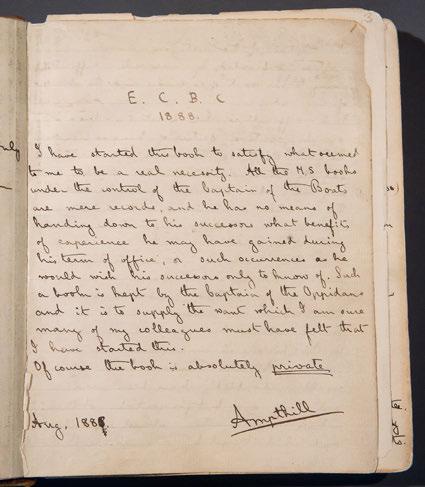 3
E. C. B. C
1888.
I have started this book to satisfy what seemed
to me to be a real necessity. All the M.S books
under the control of the Captain of the Boats
are mere records, and he has no means of
handing down to his successors what benefits
of experience he may have gained during
his term of office, or such occurrences as he
would wish his successors only to know of. Such
a book is kept by the Captain of the Oppidans
and it is to supply the want which I am sure
many of my colleagues must have felt that
I have started this.
Of course this book is absolutely private
Ampthill
Aug. 1888